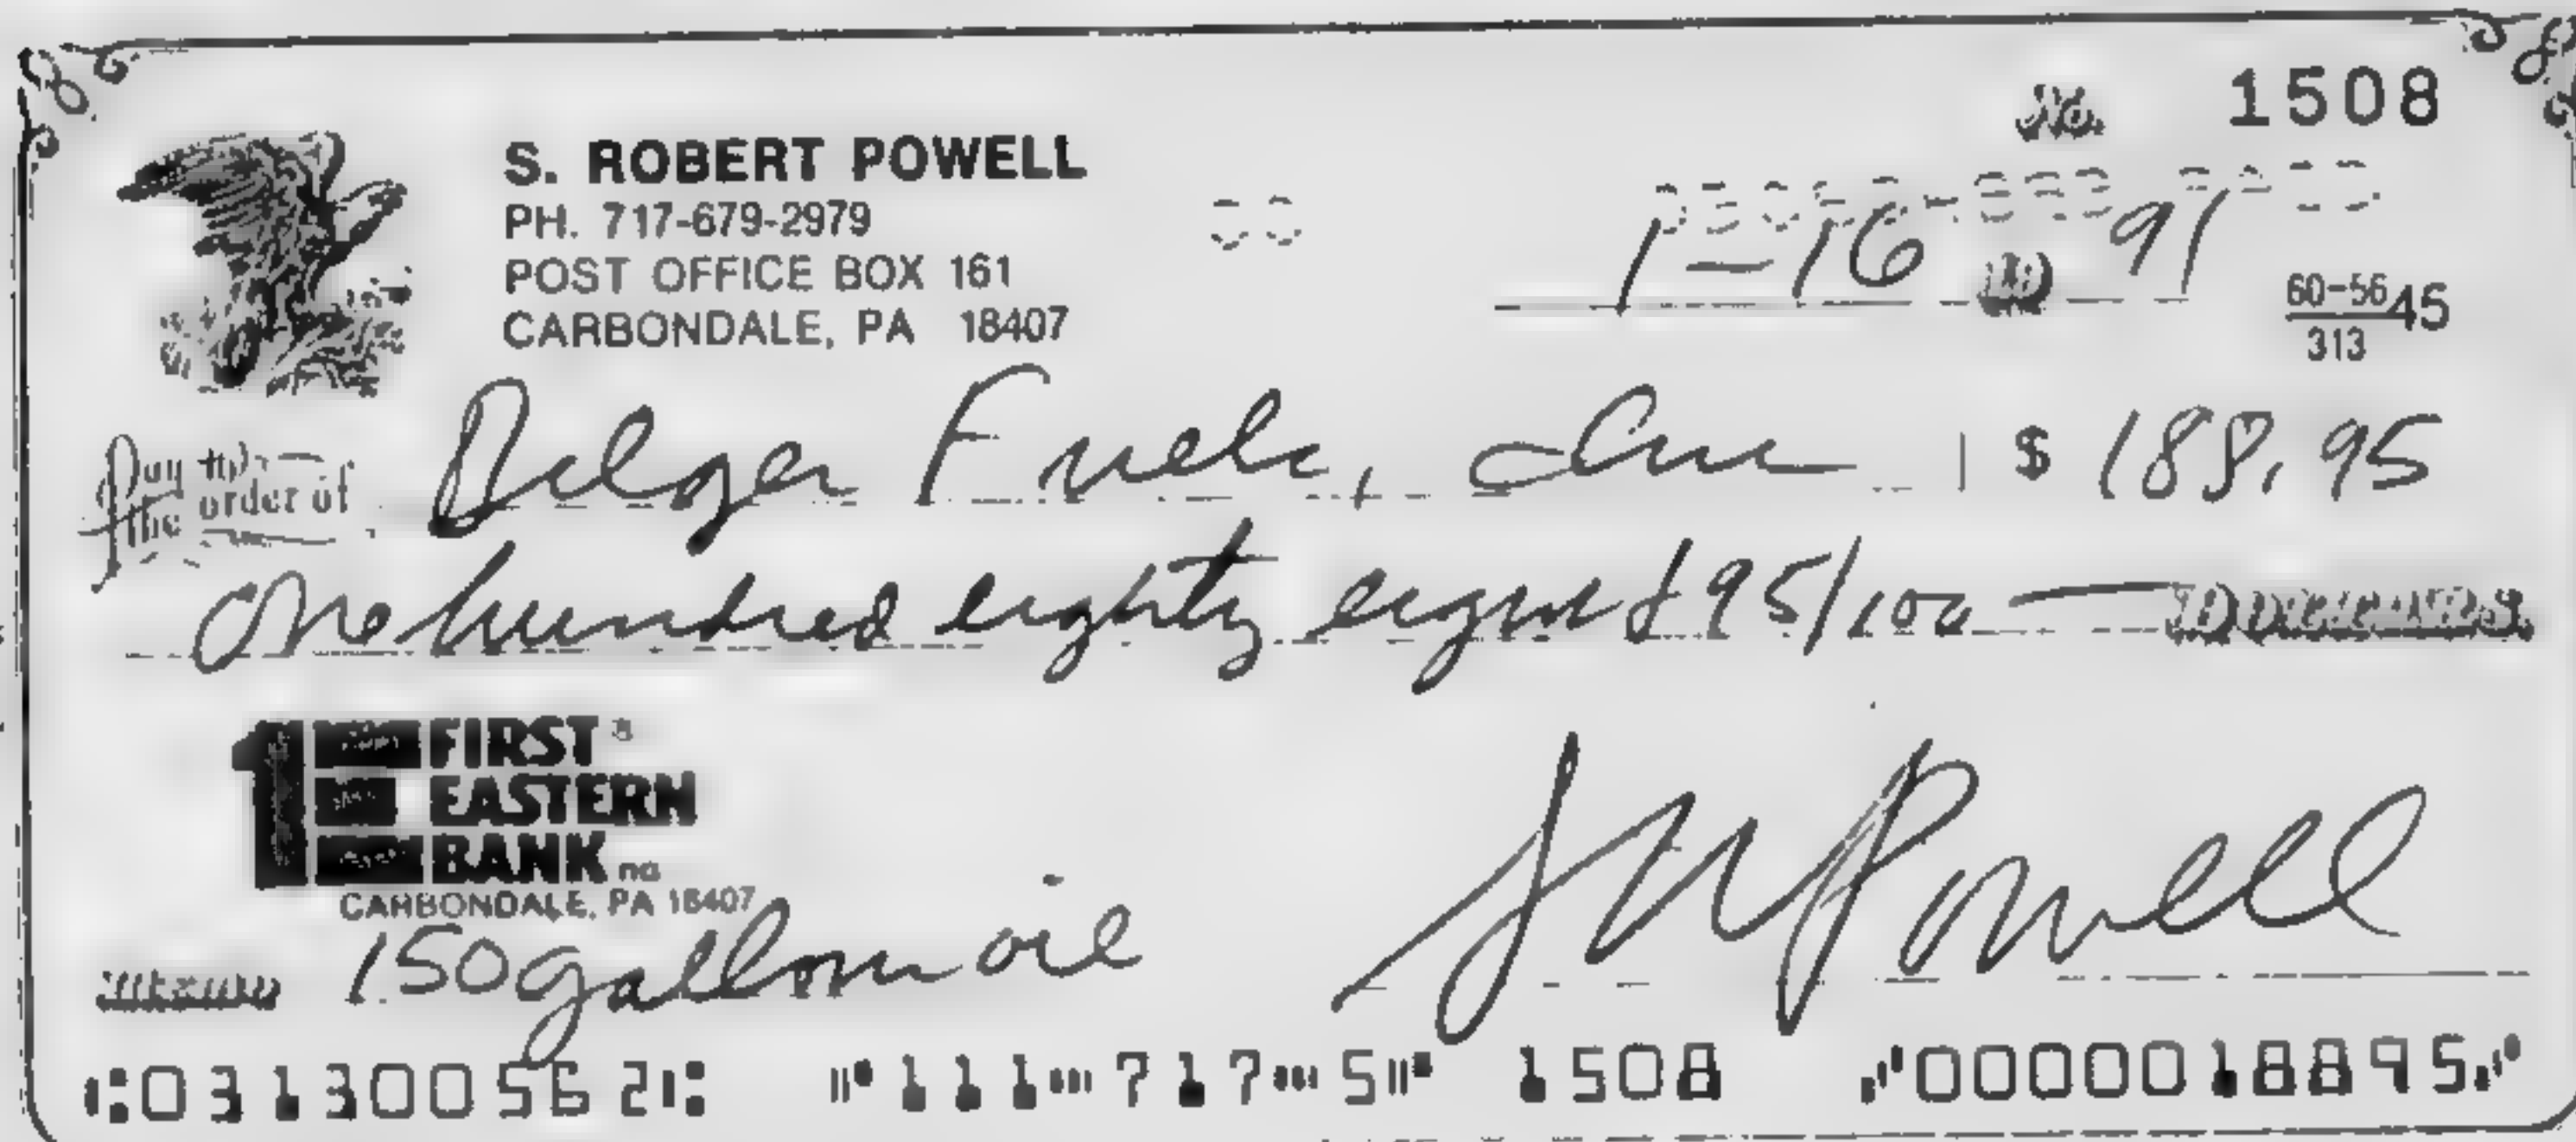 No. 1508
S. ROBERT POWELL
PH. 717-679-2979
POST OFFICE BOX 161
CARBONDALE, PA 18407
1-16 19 91
60-5645
313
Pay to the order of Bolger Fuels, Inc $ 188.95
One hundred eighty eight & 95/100 DOLLARS
1 FIRST
EASTERN
BANK na
CARBONDALE, PA 18407
Memo 150 gallons oil
S R Powell
⑆031300562⑆ ⑈111⑉717⑉5⑈ 1508 ⑇0000018895⑇